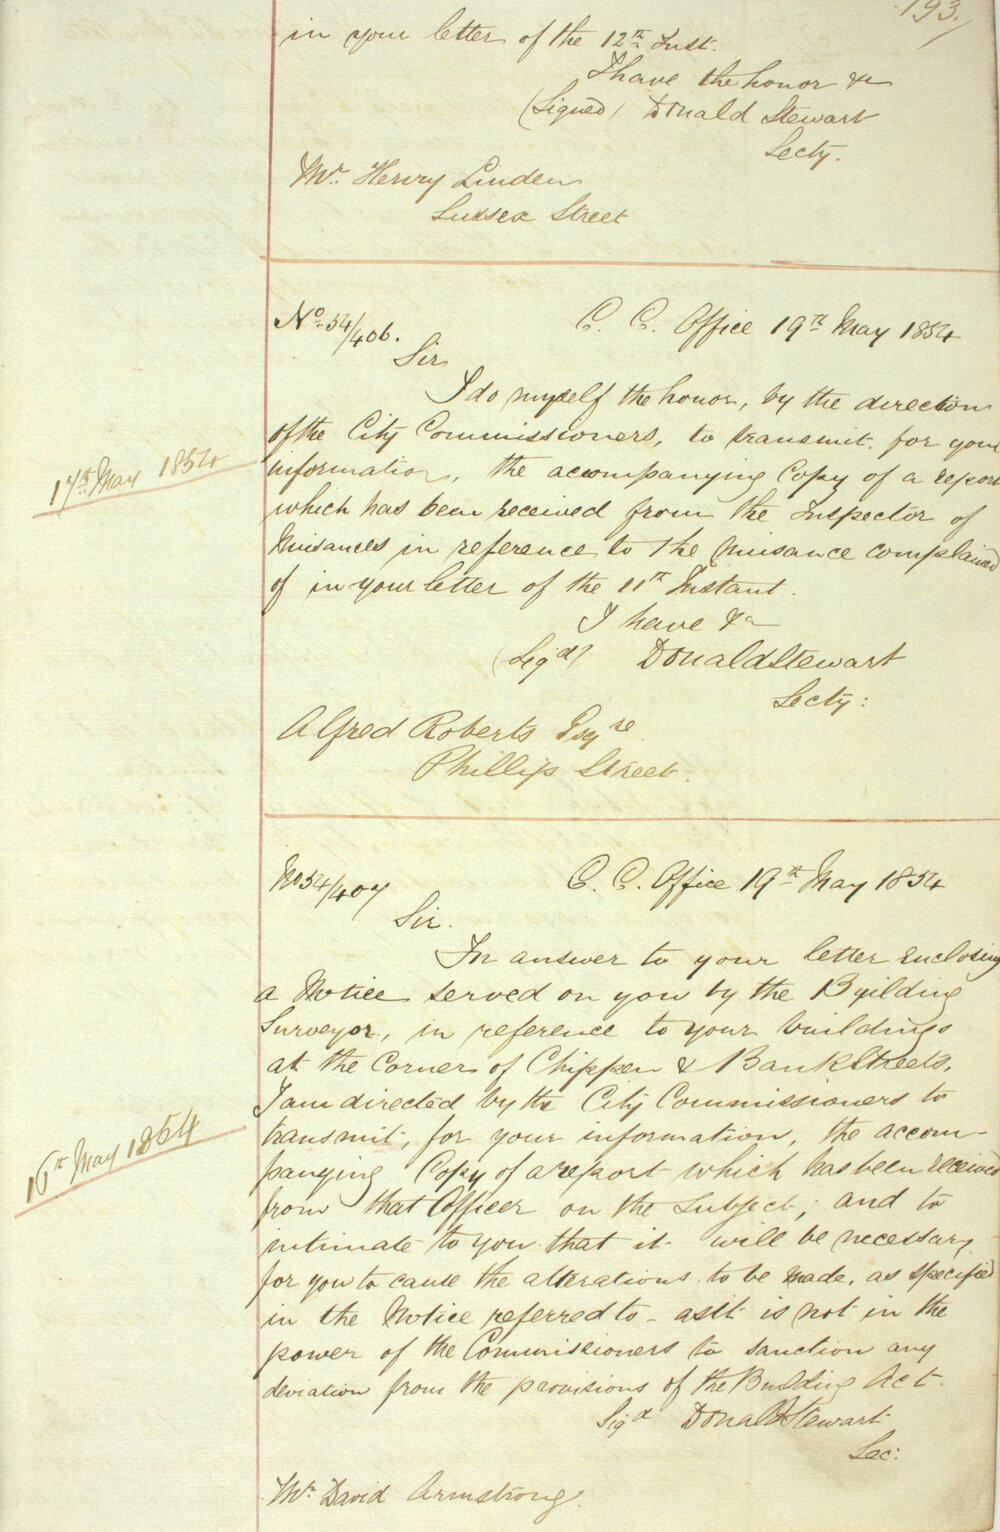 193.
in your letter of the 12th Inst.
I have the honor &c
(Signed) Donald Stewart
Secty.
Mr. Henry Linden
Sussex Street
No. 54/406.
C. C. Office 19th May 1854
Sir
I do myself the honor, by the direction
of the City Commissioners, to transmit for your
17th May 1854
information, the accompanying Copy of a report
which has been received from the Inspector of
Nuisances in reference to the nuisance complained
of in your letter of the 11th Instant.
I have &c
(Sigd) Donald Stewart
Secty:
Alfred Roberts Esqre
Phillip Street.
No 54/407
C. C. Office 19th May 1854
Sir.
In answer to your letter enclosing
a Notice served on you by the Building
Surveyor, in reference to your buildings
at the Corner of Chippen & Bank Streets,
I am directed by the City Commissioners to
16th May 1854
transmit, for your information, the accom-
panying Copy of a report which has been received
from that Officer on the Subject; and to
intimate to you that it will be necessary
for you to cause the alterations to be made, as specified
in the Notice referred to - as it is not in the
power of the Commissioners to sanction any
deviation from the provisions of the Building Act.
Sigd Donald Stewart
Sec:
Mr. David Armstrong.